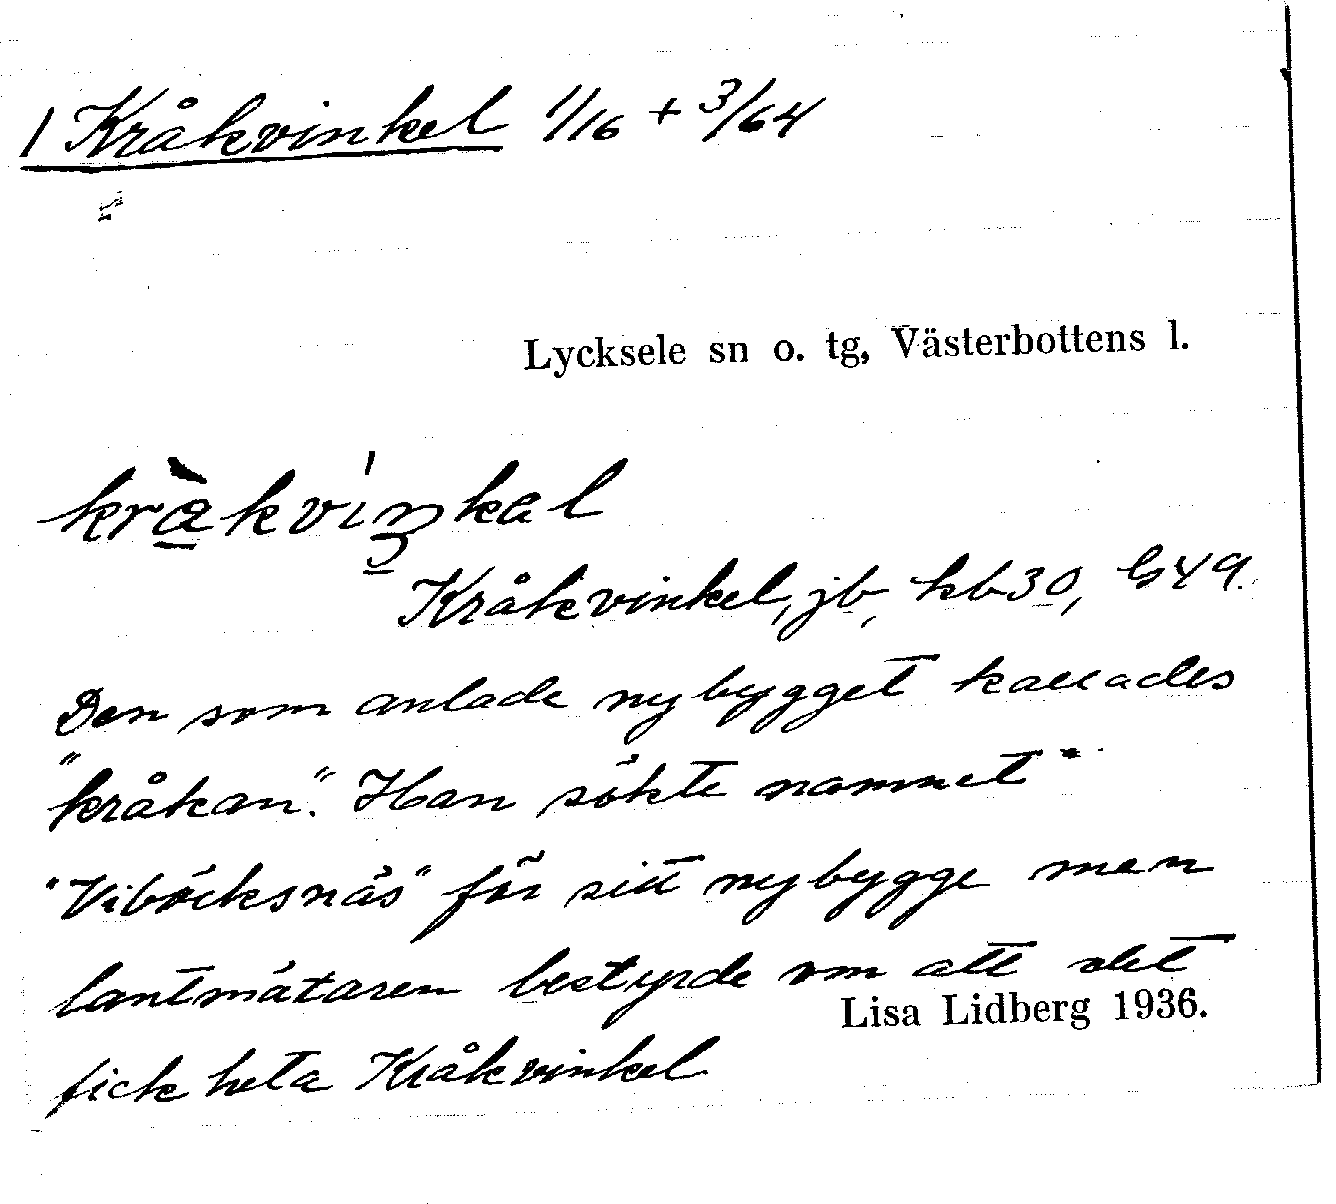 1 Kråkvinkel 1/16 + 3/64
Lycksele sn o. tg, Västerbottens l.
kråkviŋkəl
Kråkvinkel, jb, kb30, G49.
Den som anlade nybygget kallades
"kråkan". Han sökte namnet
"Viböcksnäs" för sitt nybygge men
lantmätaren bestyrde om att det
Lisa Lidberg 1936.
fick heta Kråkvinkel